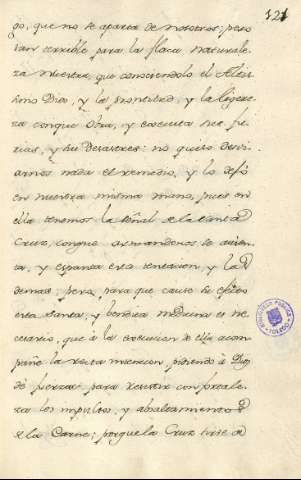 121
go, que no se aparta de nosotros; pero
tan terrible para la flaca naturale-
za nuestra, que conociendolo el Altis-
simo Dios, y la prontitud, y la ligere-
za conque obra, y executa sus fu-
rias, y sus desastres: no quiso desvi-
arnos nada el remedio, y lo dexó
en nuestra misma mano, pues en
ella tenemos la señal de la santa
Cruz, conque armandonos se auien-
ta, y espanta esta tentacion, y las
demas; pero, para que cause su efecto
esta santa, y bendita medicina es ne-
cesario, que á la execucion de ella acom-
pañe la recta intencion pidiendo á Dios
de fuerzas para resistir con fortale-
za los impulsos, y
de la Carne; porque la Cruz
BIBLIOTECA PUBLICA
TOLEDO